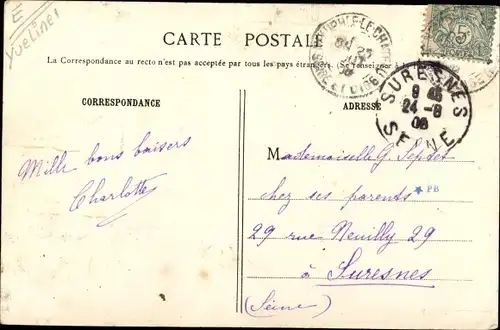 E
Yvelines
CARTE POSTALE
La Correspondance au recto n'est pas acceptée par tous les pays étrangers. (Se renseigner à la
CORRESPONDANCE
ADRESSE
5
POSTES
SURESNES
24-8
08
SEINE
Mille bons baisers
Charlotte
Mademoiselle G.
chez ses parents
PB
29 rue Neuilly 29
à Suresnes
(Seine)